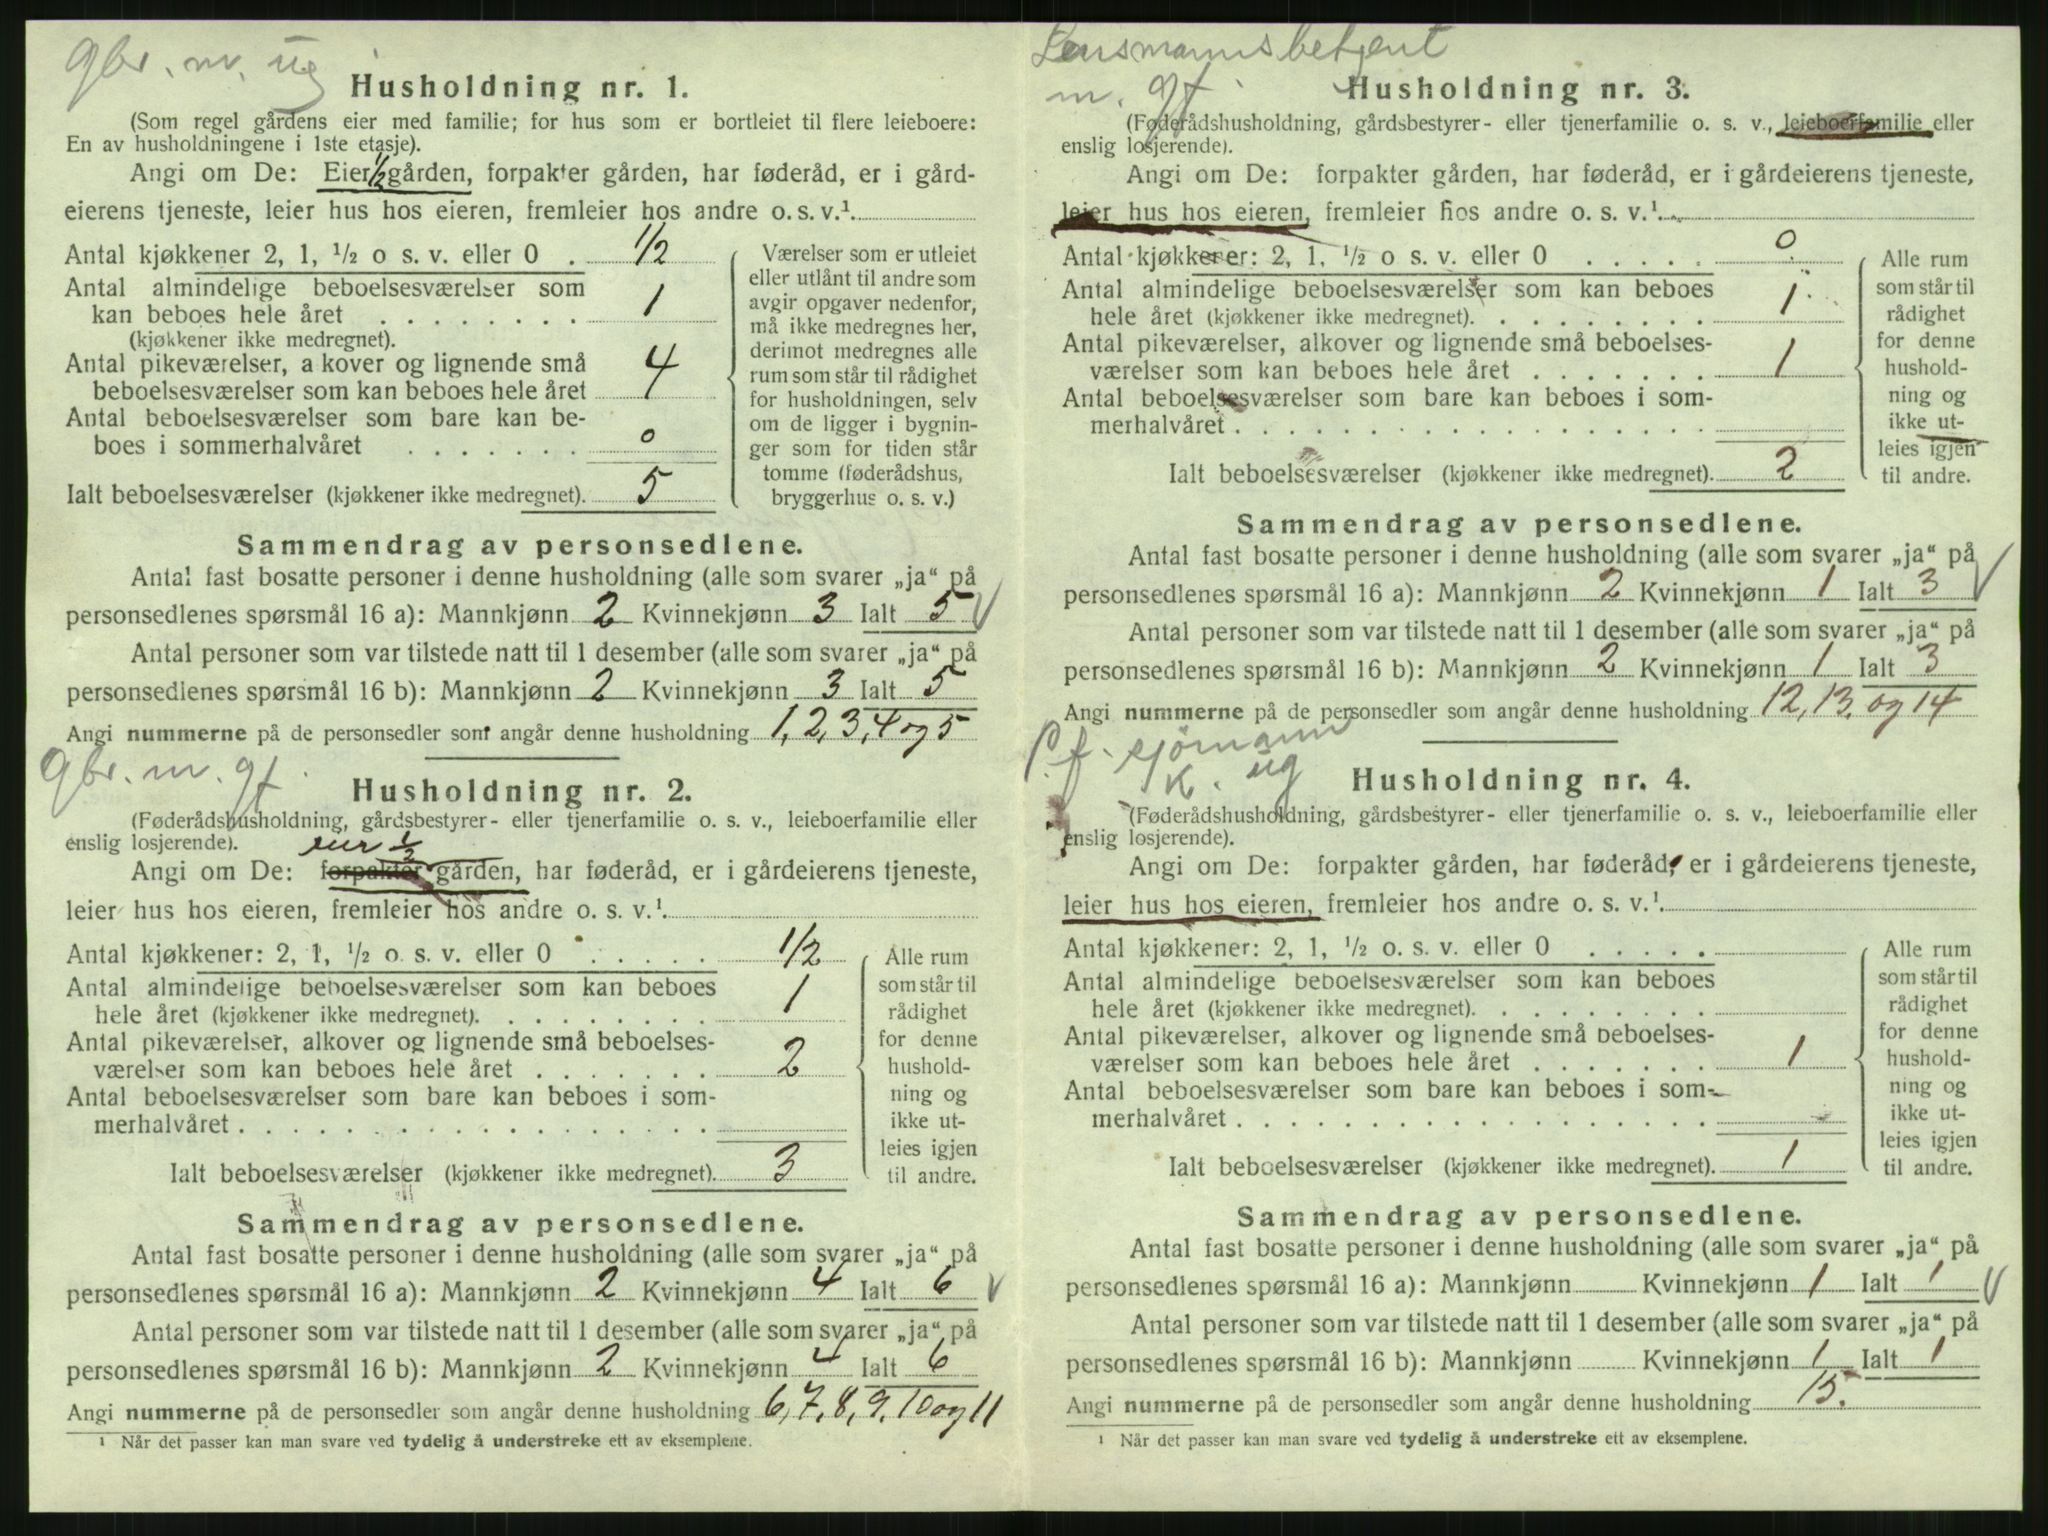 gbr. m. ug
Husholdning nr. 1.
(Som regel gårdens eier med familie; for hus som er bortleiet til flere leieboere:
En av husholdningene i 1ste etasje).
Angi om De: Eier 1/2 gården, forpakter gården, har føderåd, er i gård-
eierens tjeneste, leier hus hos eieren, fremleier hos andre o. s. v.¹
Antal kjøkkener 2, 1, ½ o s. v. eller 0 . 1/2
Antal almindelige beboelsesværelser som
kan beboes hele året . . . . . . . . 1
(kjøkkener ikke medregnet).
Antal pikeværelser, a kover og lignende små
beboelsesværelser som kan beboes hele året 4
Antal beboelsesværelser som bare kan be-
boes i sommerhalvåret . . . . . . 0
Ialt beboelsesværelser (kjøkkener ikke medregnet). 5
Værelser som er utleiet
eller utlånt til andre som
avgir opgaver nedenfor,
må ikke medregnes her,
derimot medregnes alle
rum som står til rådighet
for husholdningen, selv
om de ligger i bygnin-
ger som for tiden står
tomme (føderådshus,
bryggerhus o. s. v.)
Sammendrag av personsedlene.
Antal fast bosatte personer i denne husholdning (alle som svarer „ja“ på
personsedlenes spørsmål 16 a): Mannkjønn 2 Kvinnekjønn 3 Ialt 5 √
Antal personer som var tilstede natt til 1 desember (alle som svarer „ja“ på
personsedlenes spørsmål 16 b): Mannkjønn 2 Kvinnekjønn 3 Ialt 5
Angi nummerne på de personsedler som angår denne husholdning 1, 2, 3, 4 og 5
gbr. m. gf.
Husholdning nr. 2.
(Føderådshusholdning, gårdsbestyrer- eller tjenerfamilie o. s. v., leieboerfamilie eller
enslig losjerende).
eier 1/2
Angi om De: forpakter gården, har føderåd, er i gårdeierens tjeneste,
leier hus hos eieren, fremleier hos andre o. s. v.¹
Antal kjøkkener: 2, 1, ½ o. s. v. eller 0 . . . . . 1/2
Antal almindelige beboelsesværelser som kan beboes
hele året (kjøkkener ikke medregnet). . . . . . . . . 1
Antal pikeværelser, alkover og lignende små beboelses-
værelser som kan beboes hele året . . . . . . . 2
Antal beboelsesværelser som bare kan beboes i som-
merhalvåret . . . . . . . . . . . . . . . . . .
Ialt beboelsesværelser (kjøkkener ikke medregnet). 3
Alle rum
som står til
rådighet
for denne
hushold-
ning og
ikke ut-
leies igjen
til andre.
Sammendrag av personsedlene.
Antal fast bosatte personer i denne husholdning (alle som svarer „ja“ på
personsedlenes spørsmål 16 a): Mannkjønn 2 Kvinnekjønn 4 Ialt 6 √
Antal personer som var tilstede natt til 1 desember (alle som svarer „ja“ på
personsedlenes spørsmål 16 b): Mannkjønn 2 Kvinnekjønn 4 Ialt 6
Angi nummerne på de personsedler som angår denne husholdning 6, 7, 8, 9, 10 og 11
¹ Når det passer kan man svare ved tydelig å understreke ett av eksemplene.
Lensmannsbetjent
m. gf.
Husholdning nr. 3.
(Føderådshusholdning, gårdsbestyrer- eller tjenerfamilie o. s. v., leieboerfamilie eller
enslig losjerende).
Angi om De: forpakter gården, har føderåd, er i gårdeierens tjeneste,
leier hus hos eieren, fremleier hos andre o. s. v.¹
Antal kjøkkener: 2, 1, ½ o s. v. eller 0 . . . . . 0
Antal almindelige beboelsesværelser som kan beboes
hele året (kjøkkener ikke medregnet). . . . . . . . . 1
Antal pikeværelser, alkover og lignende små beboelses-
værelser som kan beboes hele året . . . . . . . 1
Antal beboelsesværelser som bare kan beboes i som-
merhalvåret . . . . . . . . . . . . . . . . . .
Ialt beboelsesværelser (kjøkkener ikke medregnet). 2
Alle rum
som står til
rådighet
for denne
hushold-
ning og
ikke ut-
leies igjen
til andre.
Sammendrag av personsedlene.
Antal fast bosatte personer i denne husholdning (alle som svarer „ja“ på
personsedlenes spørsmål 16 a): Mannkjønn 2 Kvinnekjønn 1 Ialt 3 √
Antal personer som var tilstede natt til 1 desember (alle som svarer „ja“ på
personsedlenes spørsmål 16 b): Mannkjønn 2 Kvinnekjønn 1 Ialt 3
Angi nummerne på de personsedler som angår denne husholdning 12, 13, og 14
f. sjömann
K. ug
Husholdning nr. 4.
(Føderådshusholdning, gårdsbestyrer- eller tjenerfamilie o. s. v., leieboerfamilie eller
enslig losjerende).
Angi om De: forpakter gården, har føderåd, er i gårdeierens tjeneste,
leier hus hos eieren, fremleier hos andre o. s. v.¹
Antal kjøkkener: 2, 1, ½ o. s. v. eller 0 . . . . .
Antal almindelige beboelsesværelser som kan beboes
hele året (kjøkkener ikke medregnet). . . . . . . . .
Antal pikeværelser, alkover og lignende små beboelses-
værelser som kan beboes hele året . . . . . . . 1
Antal beboelsesværelser som bare kan beboes i som-
merhalvåret . . . . . . . . . . . . . . . . . .
Ialt beboelsesværelser (kjøkkener ikke medregnet). 1
Alle rum
som står til
rådighet
for denne
hushold-
ning og
ikke ut-
leies igjen
til andre.
Sammendrag av personsedlene.
Antal fast bosatte personer i denne husholdning (alle som svarer „ja“ på
personsedlenes spørsmål 16 a): Mannkjønn Kvinnekjønn 1 Ialt 1 √
Antal personer som var tilstede natt til 1 desember (alle som svarer „ja“ på
personsedlenes spørsmål 16 b): Mannkjønn Kvinnekjønn 1 Ialt 1
Angi nummerne på de personsedler som angår denne husholdning 15.
¹ Når det passer kan man svare ved tydelig å understreke ett av eksemplene.